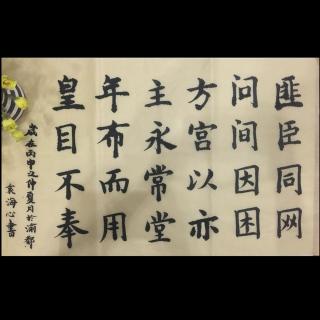 匪臣同网
问间因困
方宫以亦
主永常堂
年布而用
皇目不奉
歲在丙申之仲夏月於渝都
袁海心書